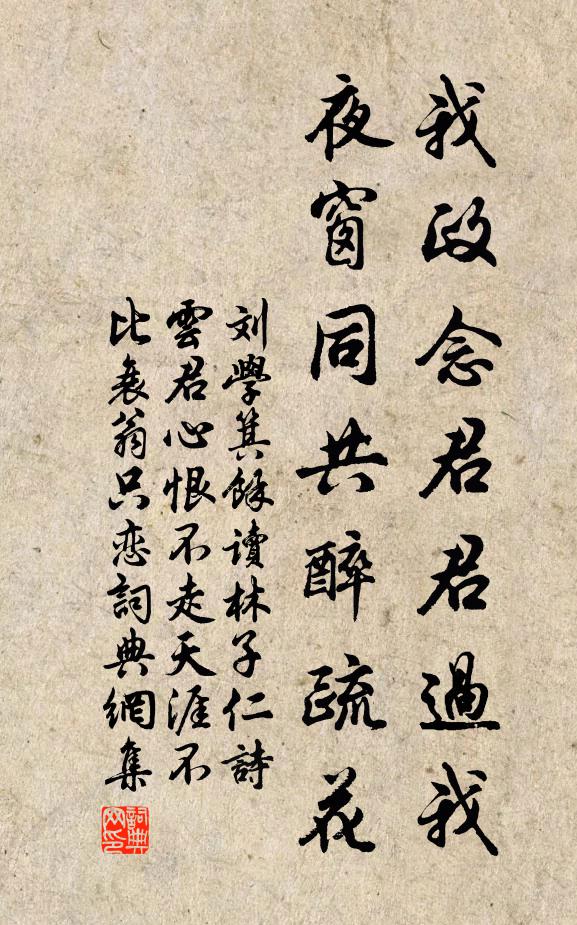 我政念君君過我
夜窗同共醉疏花
刘學箕餘讀林子仁詩
雲君心恨不走天涯不
比衰翁只恋詞典網集
詞典
网印